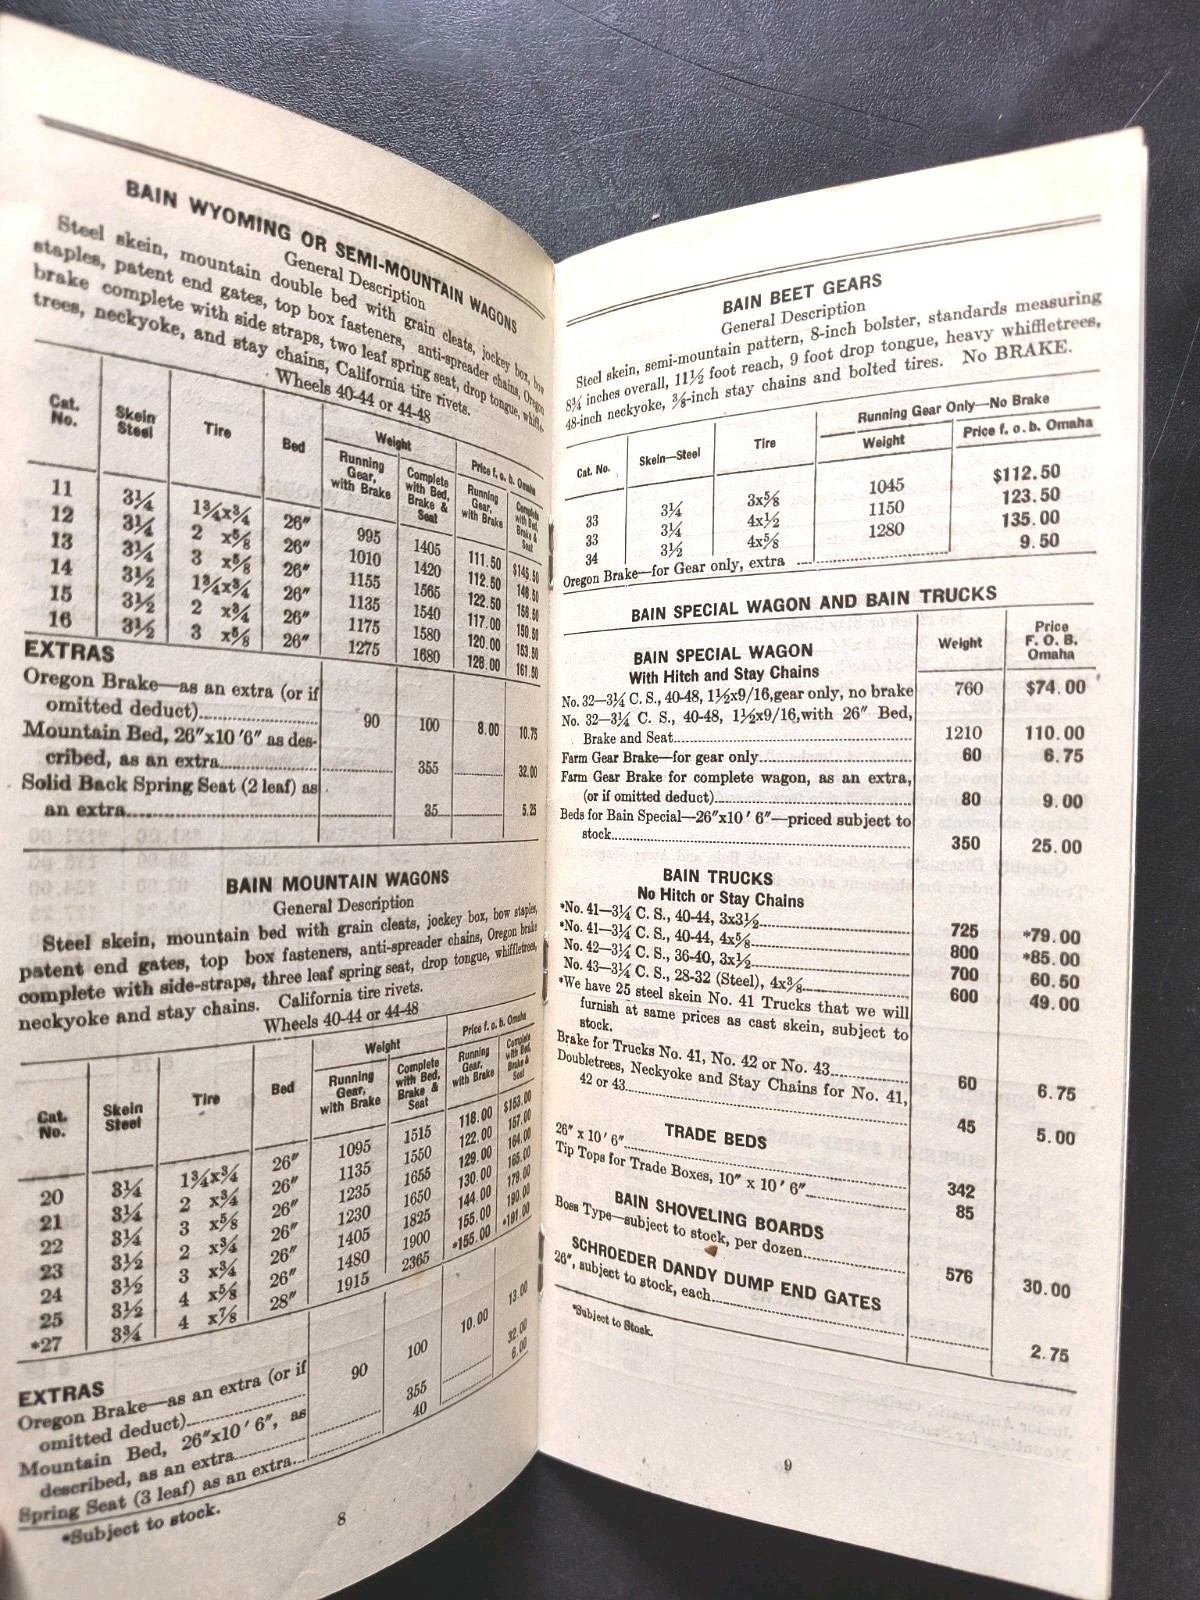 BAIN WYOMING OR SEMI-MOUNTAIN WAGONS
General Description
Steel skein, mountain double bed with grain cleats, jockey box, bow
staples, patent end gates, top box fasteners, anti-spreader chains, Oregon
brake complete with side straps, two leaf spring seat, drop tongue, whiffle-
trees, neckyoke, and stay chains, California tire rivets.
Wheels 40-44 or 44-48
Cat. No. Skein Steel Tire Bed Weight Price f. o. b. Omaha
Running Gear, with Brake Complete with Bed, Brake & Seat Running Gear, with Brake Complete with Bed, Brake & Seat
11 3¼ 1¾x¾ 26″ 995 1405 111.50 $145.50
12 3¼ 2 x⅝ 26″ 1010 1420 112.50 146.50
13 3¼ 3 x⅝ 26″ 1155 1565 122.50 156.50
14 3½ 1¾x¾ 26″ 1135 1540 117.00 150.50
15 3½ 2 x¾ 26″ 1175 1580 120.00 153.50
16 3½ 3 x⅝ 26″ 1275 1680 128.00 161.50
EXTRAS
Oregon Brake—as an extra (or if
omitted deduct) 90 100 8.00 10.75
Mountain Bed, 26″x10 ′6″ as des-
cribed, as an extra 355 32.00
Solid Back Spring Seat (2 leaf) as
an extra 35 5.25
BAIN MOUNTAIN WAGONS
General Description
Steel skein, mountain bed with grain cleats, jockey box, bow staples,
patent end gates, top box fasteners, anti-spreader chains, Oregon brake
complete with side-straps, three leaf spring seat, drop tongue, whiffletrees,
neckyoke and stay chains. California tire rivets.
Wheels 40-44 or 44-48
Cat. No. Skein Steel Tire Bed Weight Price f. o. b. Omaha
Running Gear, with Brake Complete with Bed, Brake & Seat Running Gear, with Brake Complete with Bed, Brake & Seat
20 3¼ 1¾x¾ 26″ 1095 1515 118.00 $153.00
21 3¼ 2 x¾ 26″ 1135 1550 122.00 157.00
22 3¼ 3 x⅝ 26″ 1235 1655 129.00 164.00
23 3½ 2 x¾ 26″ 1230 1650 130.00 165.00
24 3½ 3 x¾ 26″ 1405 1825 144.00 179.00
25 3½ 4 x⅝ 26″ 1480 1900 155.00 190.00
*27 3¾ 4 x⅞ 28″ 1915 2365 *155.00 *191.00
EXTRAS
Oregon Brake—as an extra (or if
omitted deduct) 90 100 10.00 13.00
Mountain Bed, 26″x10 ′ 6″, as
described, as an extra 355 32.00
Spring Seat (3 leaf) as an extra 40 6.00
*Subject to stock.
8
BAIN BEET GEARS
General Description
Steel skein, semi-mountain pattern, 8-inch bolster, standards measuring
8¾ inches overall, 11½ foot reach, 9 foot drop tongue, heavy whiffletrees,
48-inch neckyoke, ⅜-inch stay chains and bolted tires. No BRAKE.
Cat. No. Skein—Steel Tire Running Gear Only—No Brake
Weight Price f. o. b. Omaha
33 3¼ 3x⅝ 1045 $112.50
33 3¼ 4x½ 1150 123.50
34 3½ 4x⅝ 1280 135.00
Oregon Brake—for Gear only, extra 9.50
BAIN SPECIAL WAGON AND BAIN TRUCKS
Weight Price F. O. B. Omaha
BAIN SPECIAL WAGON
With Hitch and Stay Chains
No. 32—3¼ C. S., 40-48, 1½x9/16, gear only, no brake 760 $74.00
No. 32—3¼ C. S., 40-48, 1½x9/16, with 26″ Bed,
Brake and Seat 1210 110.00
Farm Gear Brake—for gear only 60 6.75
Farm Gear Brake for complete wagon, as an extra,
(or if omitted deduct) 80 9.00
Beds for Bain Special—26″x10 ′ 6″—priced subject to
stock 350 25.00
BAIN TRUCKS
No Hitch or Stay Chains
*No. 41—3¼ C. S., 40-44, 3x3½ 725 *79.00
*No. 41—3¼ C. S., 40-44, 4x⅝ 800 *85.00
No. 42—3¼ C. S., 36-40, 3x½ 700 60.50
No. 43—3¼ C. S., 28-32 (Steel), 4x⅜ 600 49.00
*We have 25 steel skein No. 41 Trucks that we will
furnish at same prices as cast skein, subject to
stock.
Brake for Trucks No. 41, No. 42 or No. 43 60 6.75
Doubletrees, Neckyoke and Stay Chains for No. 41,
42 or 43 45 5.00
TRADE BEDS
26″ x 10 ′ 6″ 342
Tip Tops for Trade Boxes, 10″ x 10 ′ 6″ 85
BAIN SHOVELING BOARDS
Boss Type—subject to stock, per dozen 576 30.00
SCHROEDER DANDY DUMP END GATES
26″, subject to stock, each 2.75
*Subject to Stock.
9